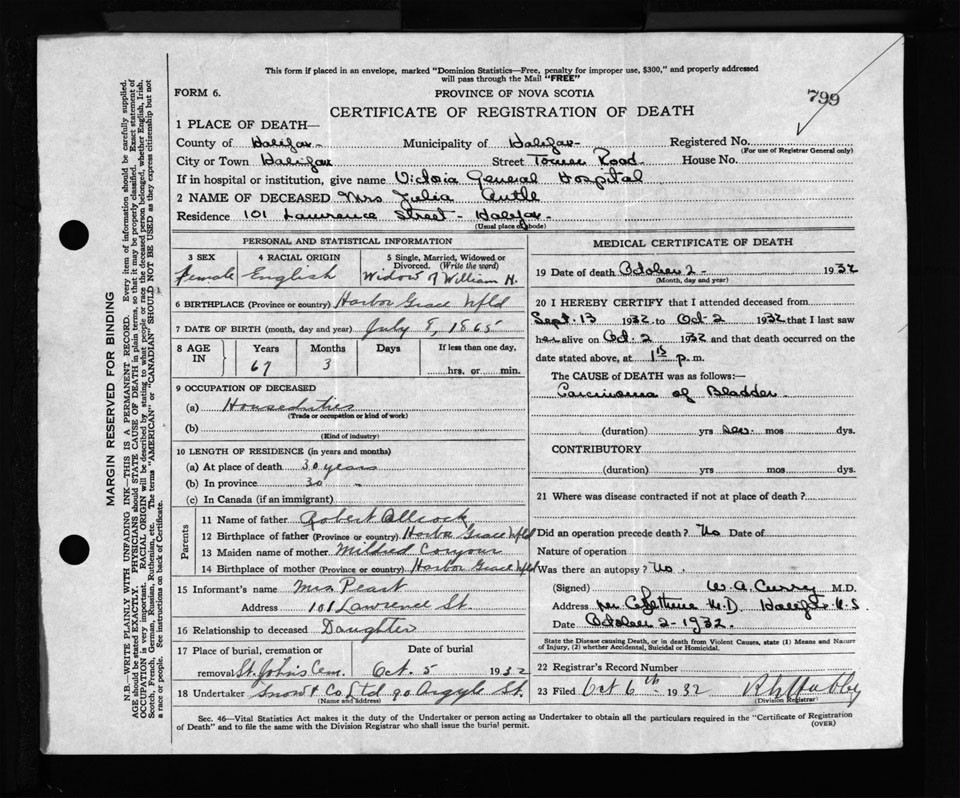 This form if placed in an envelope, marked "Dominion Statistics—Free, penalty for improper use, $300," and properly addressed
will pass through the Mail "FREE"
799
FORM 6.
PROVINCE OF NOVA SCOTIA
CERTIFICATE OF REGISTRATION OF DEATH
1 PLACE OF DEATH—
County of Halifax Municipality of Halifax Registered No.
(For use of Registrar General only)
City or Town Halifax Street Tower Road House No.
If in hospital or institution, give name Victoria General Hospital
2 NAME OF DECEASED Mrs Julia
Residence 101 Lawrence Street - Halifax
(Usual place of abode)
PERSONAL AND STATISTICAL INFORMATION
3 SEX 4 RACIAL ORIGIN 5 Single, Married, Widowed or
Divorced. (Write the word)
Female English Widow of William H.
6 BIRTHPLACE (Province or country) Harbor Grace Nfld
7 DATE OF BIRTH (month, day and year) July 8, 1865
8 AGE IN Years Months Days If less than one day,
67 3 hrs. or min.
9 OCCUPATION OF DECEASED
(a) Houseduties
(Trade or occupation or kind of work)
(b)
(Kind of industry)
10 LENGTH OF RESIDENCE (in years and months)
(a) At place of death 30 years
(b) In province 30 "
(c) In Canada (if an immigrant)
Parents
11 Name of father Robert Allcock
12 Birthplace of father (Province or country) Harbor Grace Nfld
13 Maiden name of mother Mildred
14 Birthplace of mother (Province or country) Harbor Grace Nfld
15 Informant's name Mrs Peart
Address 101 Lawrence St.
16 Relationship to deceased Daughter
17 Place of burial, cremation or Date of burial
removal St. John's Cem. Oct. 5 1932
18 Undertaker Snow & Co Ltd 90 Argyle St.
(Name and address)
MEDICAL CERTIFICATE OF DEATH
19 Date of death October 2 - 1932
(Month, day and year)
20 I HEREBY CERTIFY that I attended deceased from
Sept. 13 1932 to Oct-2 1932 that I last saw
her alive on Oct. 2 1932 and that death occurred on the
date stated above, at 1 15 p. m.
The CAUSE of DEATH was as follows:—
Carcinoma of Bladder
(duration) yrs sev. mos dys.
CONTRIBUTORY
(duration) yrs. mos. dys.
21 Where was disease contracted if not at place of death?
Did an operation precede death? No Date of
Nature of operation
Was there an autopsy? No.
(Signed) W. A. Curry M.D.
Address per M.D. Halifax N.S.
Date October 2 - 1932.
State the Disease causing Death, or in death from Violent Causes, state (1) Means and Nature
of Injury, (2) whether Accidental, Suicidal or Homicidal.
22 Registrar's Record Number
23 Filed Oct 6th 1932
(Division Registrar)
Sec. 46—Vital Statistics Act makes it the duty of the Undertaker or person acting as Undertaker to obtain all the particulars required in the "Certificate of Registration
of Death" and to file the same with the Division Registrar who shall issue the burial permit.
(OVER)
MARGIN RESERVED FOR BINDING
N.B.—WRITE PLAINLY WITH UNFADING INK—THIS IS A PERMANENT RECORD. Every item of information should be carefully supplied.
AGE should be stated EXACTLY. PHYSICIANS should STATE CAUSE OF DEATH in plain terms, so that it may be properly classified. Exact statement of
OCCUPATION is very important. RACIAL ORIGIN will be described by stating to what people or race the deceased person belonged, whether English, Irish,
Scotch, French, German, Russian, Ruthenian, etc. The terms "AMERICAN" or "CANADIAN" SHOULD NOT BE USED as they express citizenship but not
a race or people. See instructions on back of Certificate.